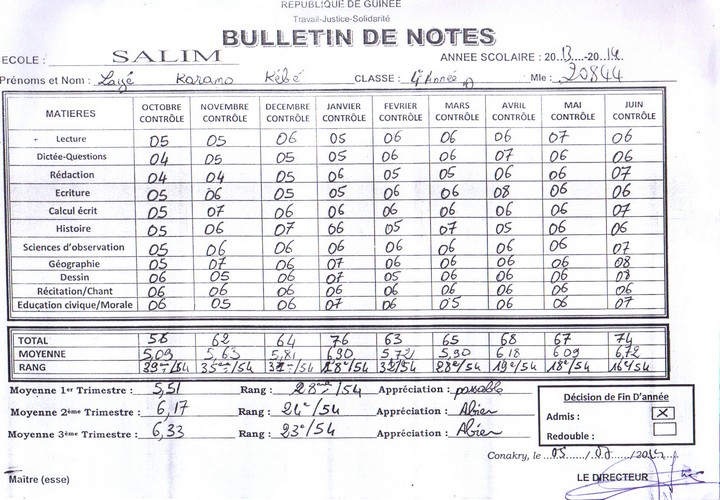 REPUBLIQUE DE GUINEE
Travail-Justice-Solidarité
BULLETIN DE NOTES
ECOLE : SALIM ANNEE SCOLAIRE : 2013-2014
Prénoms et Nom : Layé Karamo Kébé CLASSE : 4è Année A Mle : 20844
MATIERES OCTOBRE CONTRÔLE NOVEMBRE CONTRÔLE DECEMBRE CONTRÔLE JANVIER CONTRÔLE FEVRIER CONTRÔLE MARS CONTRÔLE AVRIL CONTRÔLE MAI CONTRÔLE JUIN CONTRÔLE
Lecture 05 05 06 05 06 06 06 07 06
Dictée-Questions 04 05 05 05 06 06 07 06 06
Rédaction 04 04 05 06 05 05 06 06 07
Ecriture 05 06 05 05 06 06 08 06 06
Calcul écrit 05 07 06 06 06 06 06 06 07
Histoire 05 06 07 06 05 07 05 06 06
Sciences d'observation 05 06 06 06 06 06 06 06 07
Géographie 05 07 06 07 06 06 06 06 08
Dessin 06 05 06 07 05 06 06 06 08
Récitation/Chant 06 06 06 06 06 06 06 06 06
Education civique/Morale 06 05 06 07 06 05 06 06 07
TOTAL 58 62 64 76 63 65 68 67 74
MOYENNE 5,09 5,63 5,81 6,90 5,72 5,90 6,18 6,09 6,72
RANG 39e/54 35e/54 /54 18e/54 32/54 28e/54 19e/54 18e/54 16e/54
Moyenne 1er Trimestre : 5,51 Rang : 28ème/54 Appréciation : passable
Moyenne 2ème Trimestre : 6,17 Rang : 24e/54 Appréciation : Abien
Moyenne 3ème Trimestre : 6,33 Rang : 23e/54 Appréciation : Abien
Décision de Fin D'année
Admis : X
Redouble :
Conakry, le 05
Maître (esse) LE DIRECTEUR